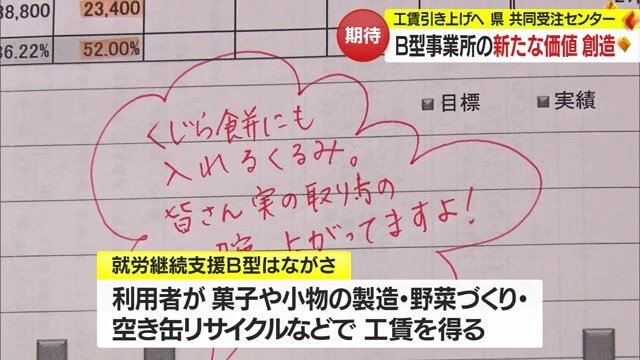 38,800 23,400
36.22% 52.00%
期待
工賃引き上げへ 県 共同受注センター
B型事業所の新たな価値 創造
目標 実績
くじら餅にも
入れるくるみ。
皆さん実の取り方の
上がってますよ!
就労継続支援B型はながさ
利用者が 菓子や小物の製造・野菜づくり・
空き缶リサイクルなどで 工賃を得る